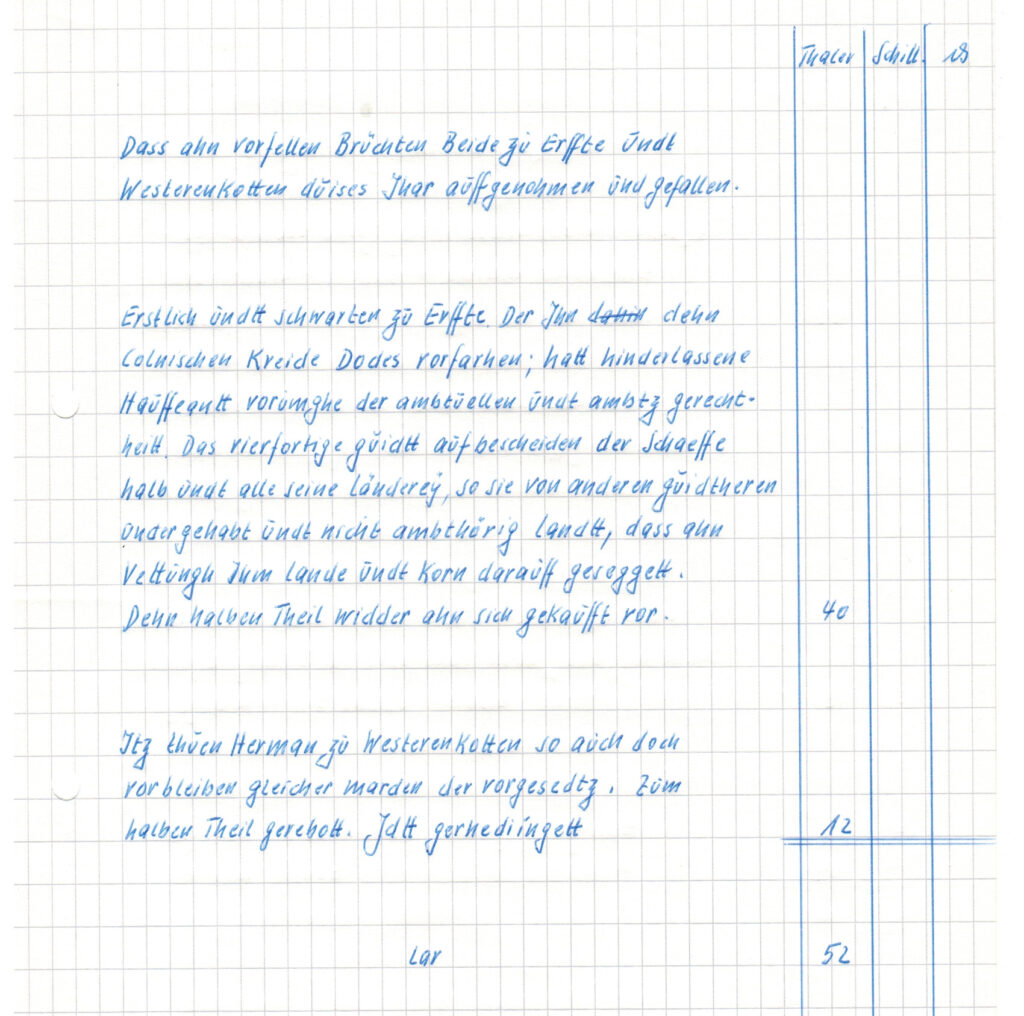 Thaler Schill. ₰
Dass ahn vorfellen Brüchten Beide zü Erffte ündt
Westerenkotten düises Jhar aüffgenohmen ünd gefallen.
Erstlich ündtt schwarten zü Erffte. Der Jhn dahin dehn
Colnischen Kreide Dodes vorfarhen; hatt hinderlassene
Haüffeantt vorümghe der ambtüellen ündt ambtz gerecht-
heitt. Das vierfortige güidtt aufbescheiden der Schaeffe
halb ündt alle seine Länderey, so sie von anderen güidtheren
ündergehabt ündt nicht ambthörig landtt, dass ahn
Vettüngh Jhm lande ündt Korn daraüff geseggett.
Dehn halben Theil widder ahn sich gekaüfft vor. 40
Jtz thüen Herman zü Westerenkotten so aüch doch
vorbleiben gleicher marden der vorgesedtz. Züm
halben Theil gerebott. Jdtt gernediingett 12
Lar 52